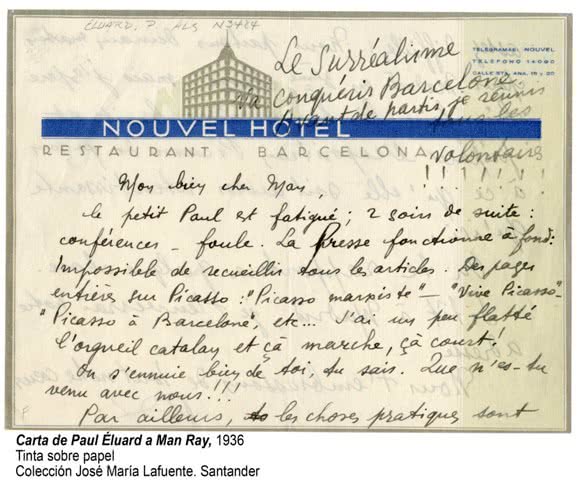 ÉLUARD, P. ALS N3424
Le Surréalisme
va conquérir Barcelone.
Avant de partir, je réunis
tous les
volontaires
! ! ! ! ! ! !
TELEGRAMAS: NOUVEL
TELÉFONO 14090
CALLE STA. ANA, 18 y 20
NOUVEL HOTEL
RESTAURANT BARCELONA
Mon bien cher Man,
le petit Paul est fatigué ; 2 soirs de suite :
conférences – foule. La Presse fonctionne à fond :
Impossible de recueillir tous les articles. Des pages
entières sur Picasso : "Picasso marxiste" – "Vive Picasso" –
"Picasso à Barcelone", etc... J'ai un peu flatté
l'orgueil catalan et çà marche, çà court !
On s'ennuie bien de toi, tu sais. Que n'es-tu
venu avec nous !!!
Par ailleurs, les choses pratiques sont
Carta de Paul Éluard a Man Ray, 1936
Tinta sobre papel
Colección José María Lafuente. Santander